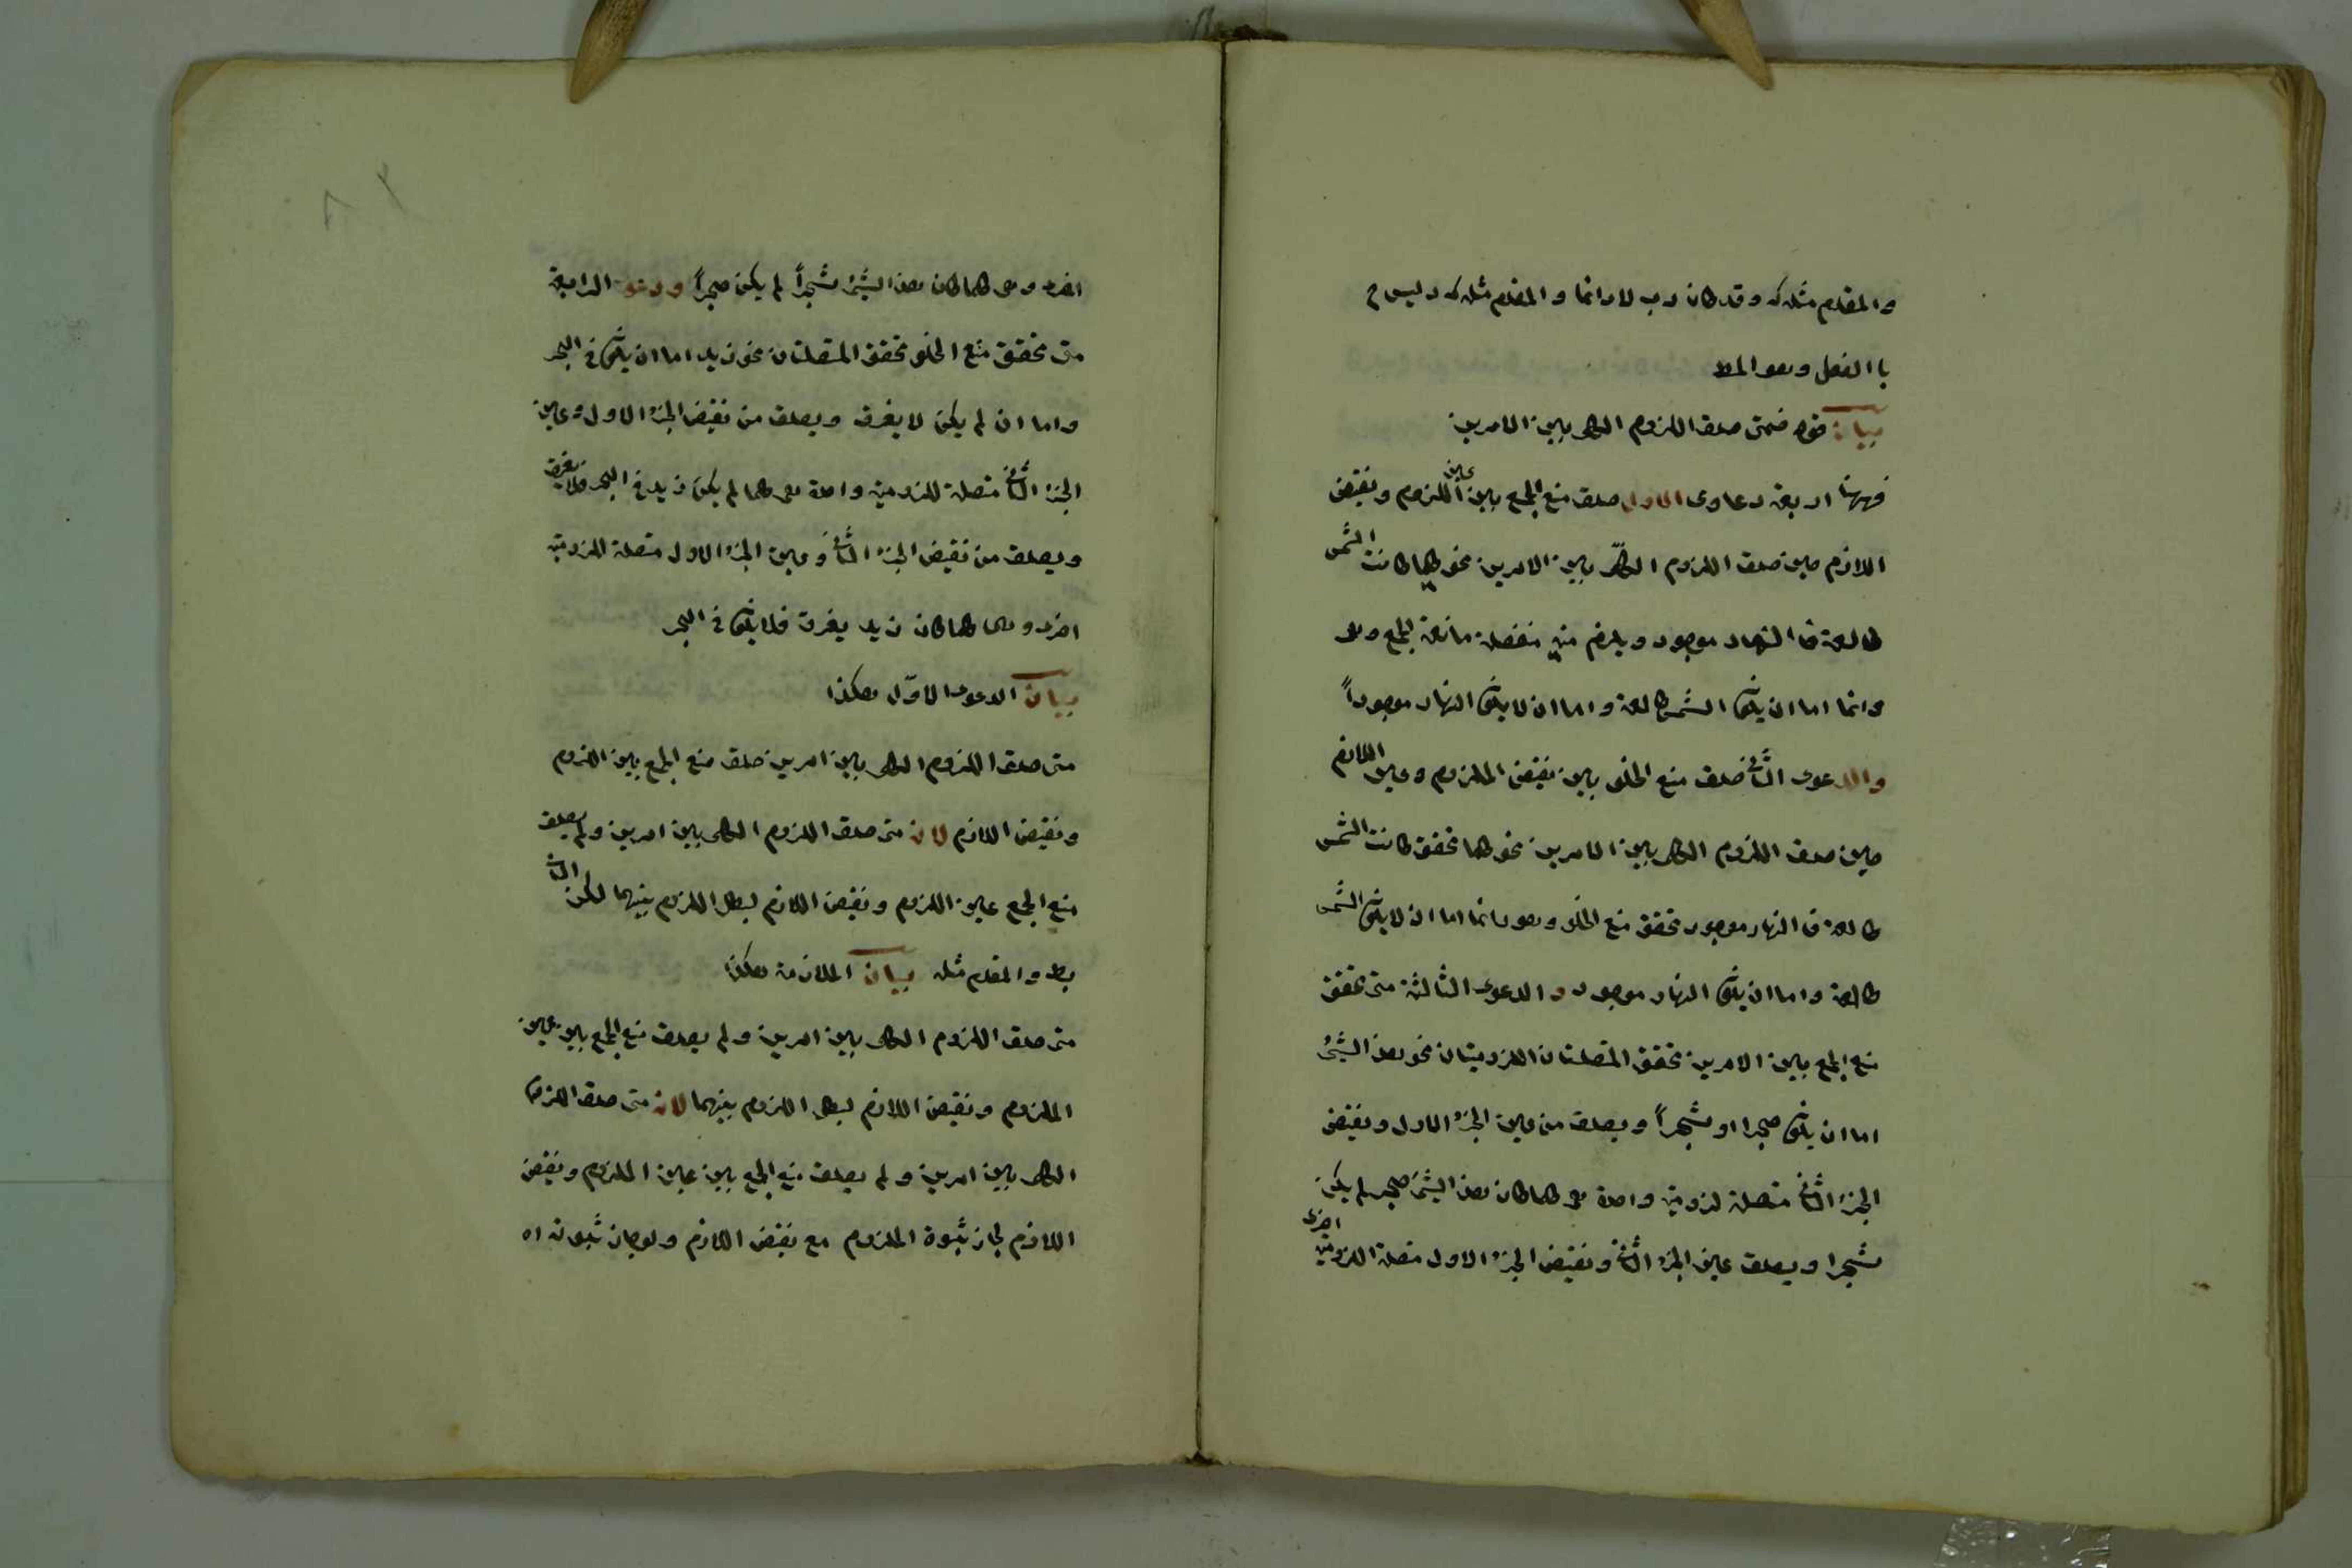 والمقدم مثله وقد كان دب لا دائما والمقدم مثله د ليس ج
با الفعل وهو المط
بيان قوله فمتى صدق اللزوم الكلى بين الامرين
فههنا اربعة دعاوى الاول صدق منع الجمع بين عين الملزوم ونقيض
اللازم حين صدق اللزوم الكلّى بين الامرين نحو كلما كانت الشمس
طالعة فا النهار موجود ويلزم منه منفصلة مانعة الجمع وهى
دائما اما ان يكون الشمس طالعة واما ان لا يكون النهار موجوداً
والدعوى الثانى صدق منع الخلو بين نقيض الملزوم وعين اللازم
حين صدق اللزوم الكلى بين الامرين نحو كلما تحقق كانت الشمس
طالعة فا النهار موجود تحقق منع الخلو وهو دائما اما ان لا يكون الشمس
طالعة واما ان يكون النهار موجود والدعوى الثالثة متى تحقق
منع الجمع بين الامرين تحقق المتصلتان اللزوميتان نحو هذ الشئ
اما ان يكون حجرا او شجراً ويصدق من عين الجزء الاول ونقيض
الجزء الثانى متصلة لزومية واحدة هى كلما كان هذ الشئ حجر لم يكن
شجرا ويصدق عين الجزء الثانى ونقيض الجزء الاول متصلة اللزومية اخرى
اخرى وهى كلما كان هذ الشئ شجراً لم يكن حجراً ودعوى الرابعة
متى تحقق منع الخلو تحقق المتصلتان نحو زيد اما ان يكون فى البحر
واما ان لم يكن لا يغرق ويصدق من نقيض الجزء الاول وعين
الجزء الثانى متصلة للزومية واحدة هى كلما لم يكن زيد فى البحر فلا يغرق
ويصدق من نقيض الجزء الثانى وعين الجزء الاول متصلة اللزومية
اخرى وهى كلما كان زيد يغرق فلا يكون فى البحر
بيان الدعوى الاوّل هكذا
متى صدق اللزوم الكلى بين امرين صدق منع الجمع بين الملزوم
ونقيض اللازم لان متى صدق اللزوم الكلى بين امرين ولم يصدق
منع الجمع عين الملزوم ونقيض اللازم لبطل اللزوم بينهما لكن التا
بط والمقدم مثله بيان الملازمة هكذا
متى صدق اللزوم الكلى بين امرين ولم يصدق منع الجمع بين عين
الملزوم ونقيض اللازم لبطل اللزوم بينهما لان متى صدق اللزوم
الكلى بين امرين ولم يصدق منع الجمع بين عين الملزوم ونقيض
اللازم لجاز ثبوة الملزوم مع نقيض اللازم ولو جاز ثبوته اه